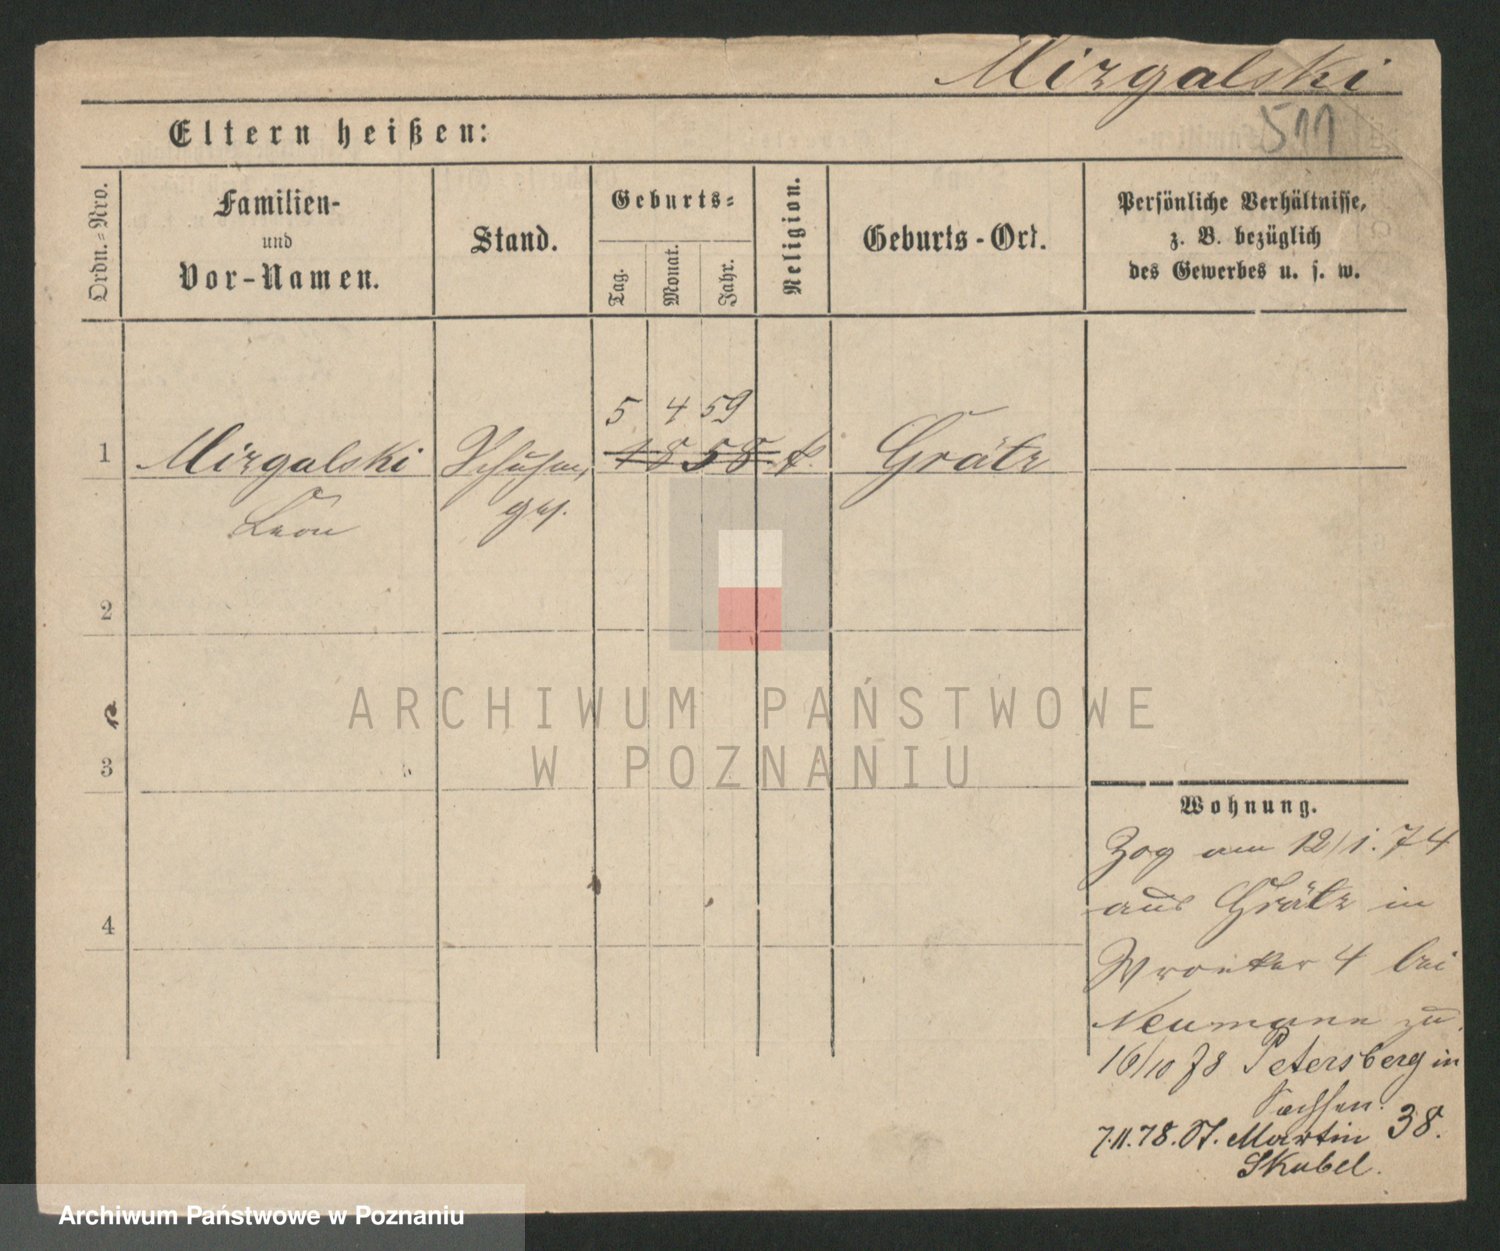 Mizgalski
511
Eltern heißen:
Ordn.=Nro.
Familien-
und
Vor-Namen.
Stand.
Geburts=
Tag.
Monat.
Jahr.
Religion.
Geburts-Ort.
Persönliche Verhältnisse,
z. B. bezüglich
des Gewerbes u. s. w.
5 4 59
1 Mizgalski Schuhm. 1858. k. Grätz
Leon ges.
2
3
4
Wohnung.
Zog am 12/1. 74
aus Grätz in
Wronker 4 bei
Neumann zu.
16/10 78 Petersberg in
Sachsen.
7.11.78. St. Martin 38.
Skubel.
ARCHIWUM PAŃSTWOWE
W POZNANIU
Archiwum Państwowe w Poznaniu